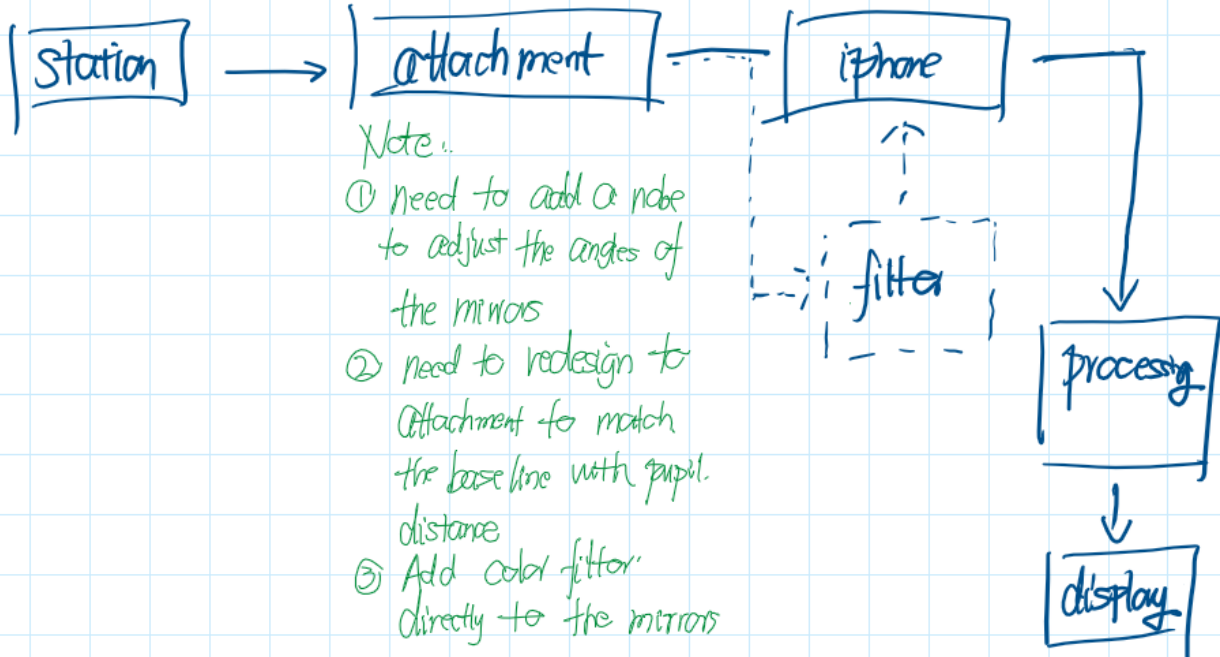 Station
attachment
iphone
Note:
① need to add a nobe
to adjust the angles of
the mirrors
② need to redesign to
attachment to match
the baseline with pupil.
distance
③ Add color filter
directly to the mirrors
filter
processing
display